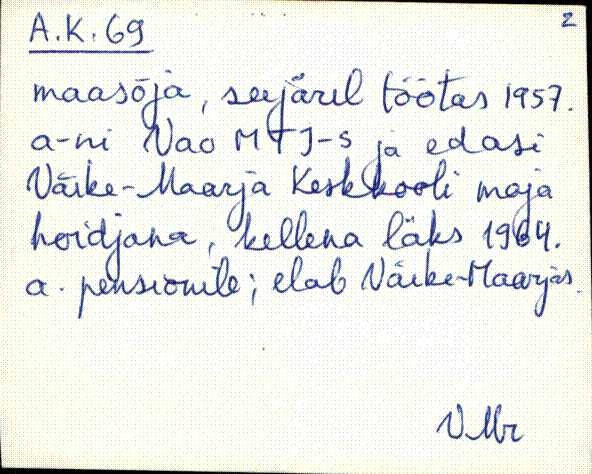 A.K. 69
2
maasõja, seejärel töötas 1957.
a-ni Vao MTJ-s ja edasi
Väike-Maarja Keskkooli maja
hoidjana, kellena läks 1964.
a. pensionile; elab Väike-Maarjas.
VMr